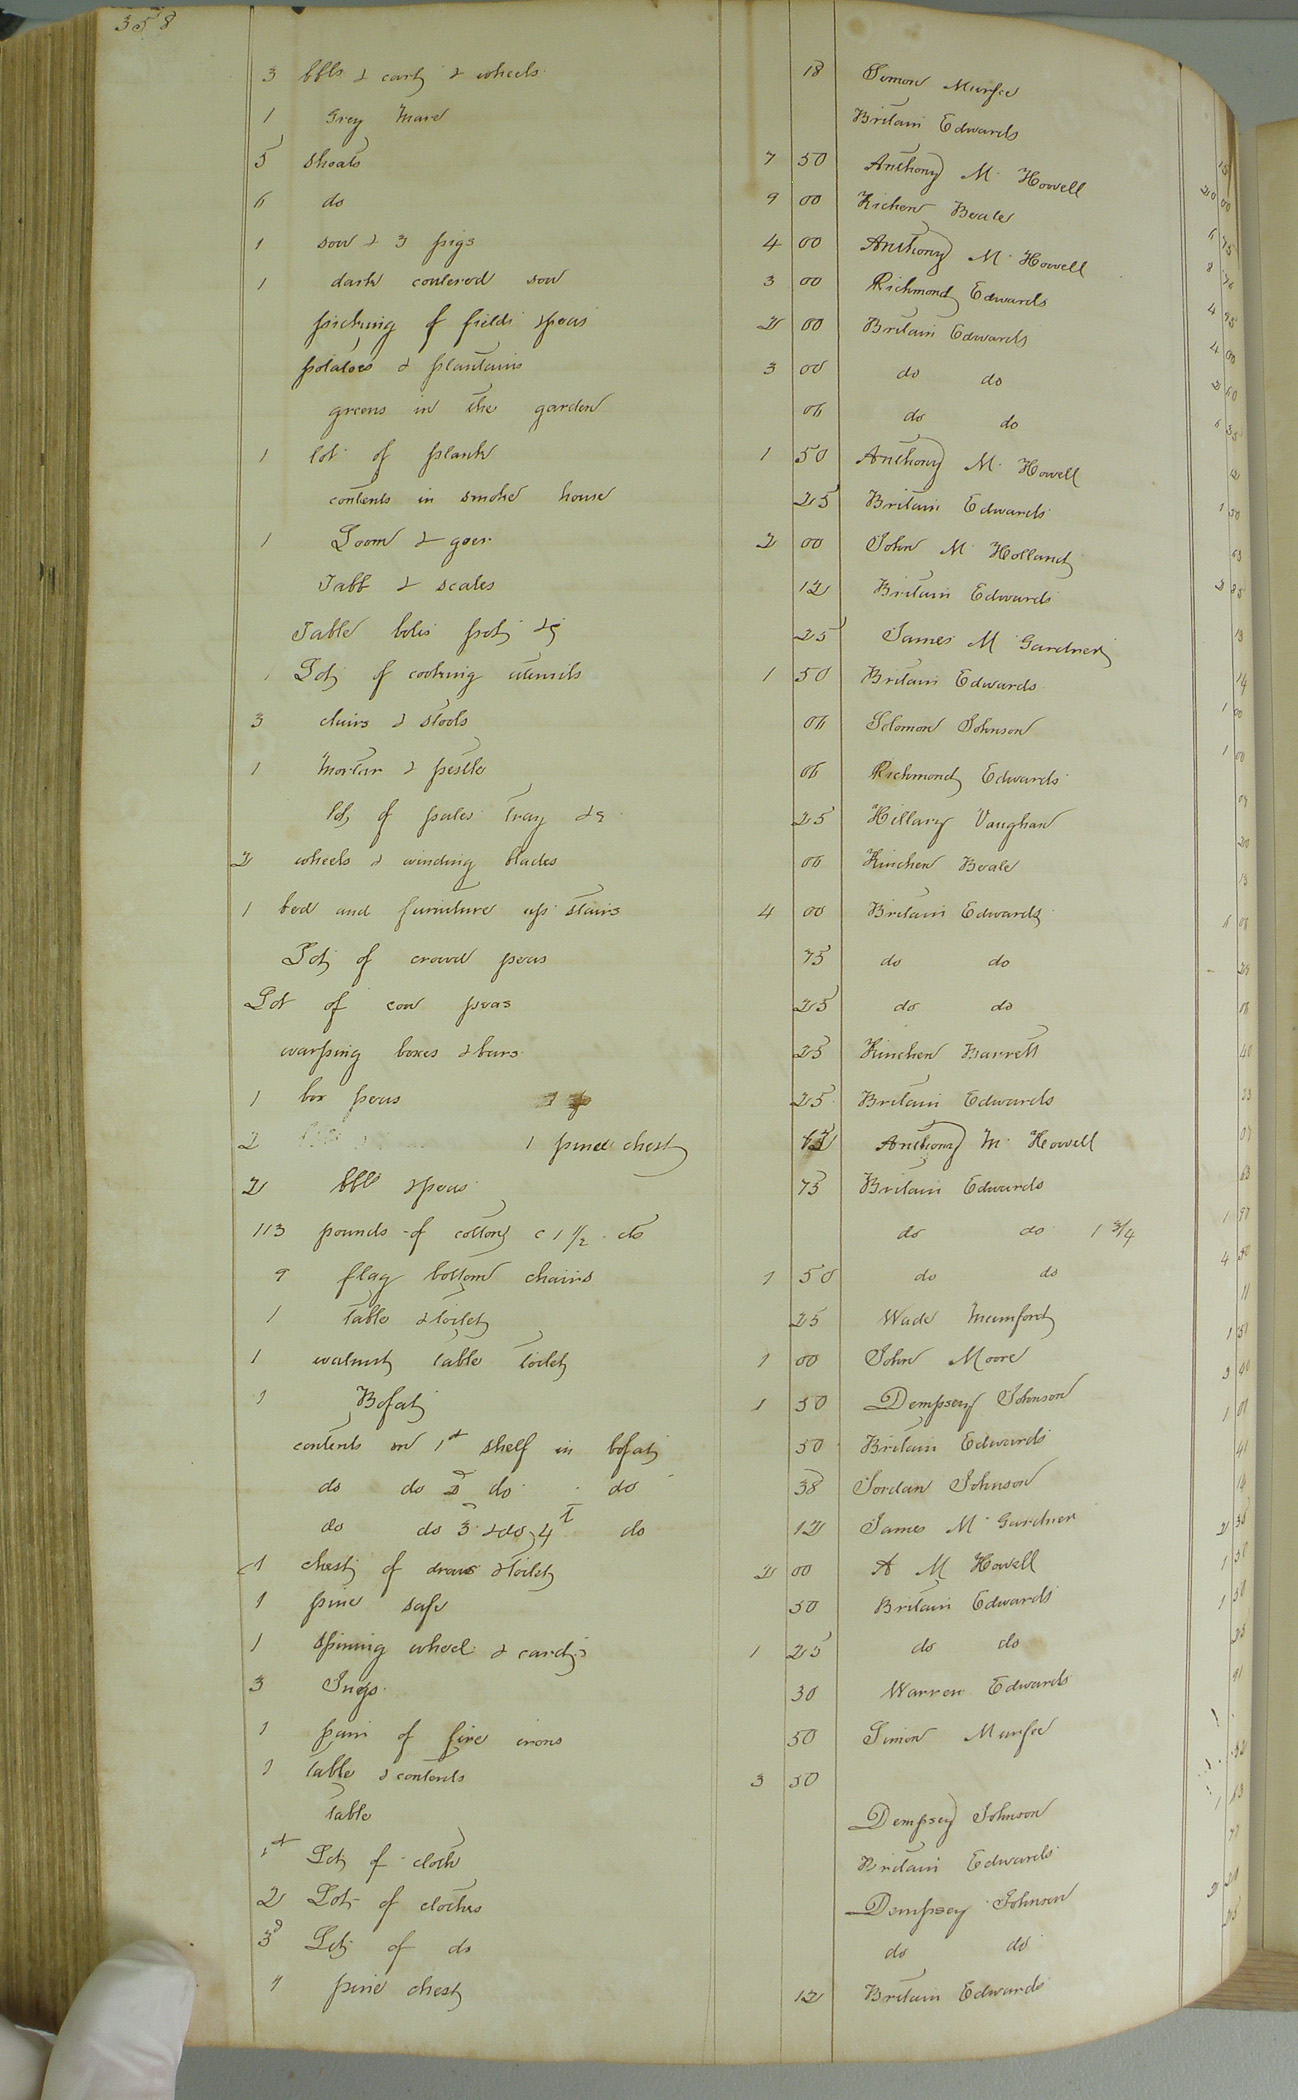 358
3 bbls & cart & wheels 18 Simon Murfee
1 Grey Mare Britain Edwards
5 shoats 7 50 Anthony M Howell
6 do 9 00 Kichen Beale
1 sow & 3 pigs 4 00 Anthony M Howell
1 dark coulered sow 3 00 Richmond Edwards
picking of fields &peas 2 00 Britain Edwards
potatoes & plantains 3 00 do do
greens in the garden 06 do do
1 lot of plank 1 50 Anthony M Howell
contents in smoke house 25 Britain Edwards
1 Loom & geer 2 00 John M Holland
Tabb & scales 12 Britain Edwards
Table bolis pot &c 25 James M Gardner
1 Lot of cooking utensils 1 50 Britain Edwards
3 chairs & stools 06 Solomon Johnson
1 Mortar & pestle 06 Richmond Edwards
lot of pales tray &c 25 Hillary Vaughan
2 wheels & winding blades 06 Kinchen Beale
1 bed and furniture up stairs 4 00 Britain Edwards
Lot of crowd peas 75 do do
Lot of cow peas 25 do do
warping boxes &bars 25 Kinchen Barrett
1 box peas 25 Britain Edwards
2 1 pine chest Anthony M Howell
2 bbls &peas 75 Britain Edwards
113 pounds of cotton c 1 1/2 do do do 1 3/4
9 flag bottom chairs 1 50 do do
1 table &toilet 25 Wade Mumford
1 walnut table toilet 1 00 John Moore
1 Bofat 1 50 Dempsey Johnson
contents on 1st shelf in bofat 50 Britain Edwards
do do 2d do do 38 Jordan Johnson
do do 3 &do 4t do 12 James M Gardner
1 chest of draws &toilet 2 00 A M Howell
1 pine safe 50 Britain Edwards
1 spinning wheel & cards 1 25 do do
3 Jugs 30 Warren Edwards
1 pair of fire irons 50 Simon Murfee
1 table & contents 3 50
table Dempsey Johnson
1st Lot of cloth Britain Edwards
2 Lot of clothes Dempsey Johnson
3d Lot of do do do
1 pine chest 12 Britain Edwards